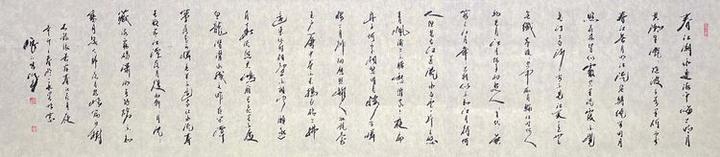 春江潮水連海平海上明月
共潮生灩灩隨波千萬里何處
春江無月明江流宛轉繞芳甸月
照花林皆似霰空裏流霜不覺
飛汀上白沙看不見江天一色
無纖塵皎皎空中孤月輪江畔何人
初見月江月何年初照人人生代代無
窮已江月年年只相似不知江月待何
人但見長江送流水白雲一片去悠
悠青楓浦上不勝愁誰家今夜扁
舟子何處相思明月樓可憐
樓上月徘徊應照離人妝鏡臺
玉戶簾中卷不去搗衣砧上拂
還來此時相望不相聞願逐
月華流照君鴻雁長飛光不度
魚龍潛躍水成文昨夜閒潭
夢落花可憐春半不還家江水流春
去欲盡江潭落月復西斜斜月沉沉
藏海霧碣石瀟湘無限路不知
乘月幾人歸落月搖情滿江樹
張若虛春江花月夜